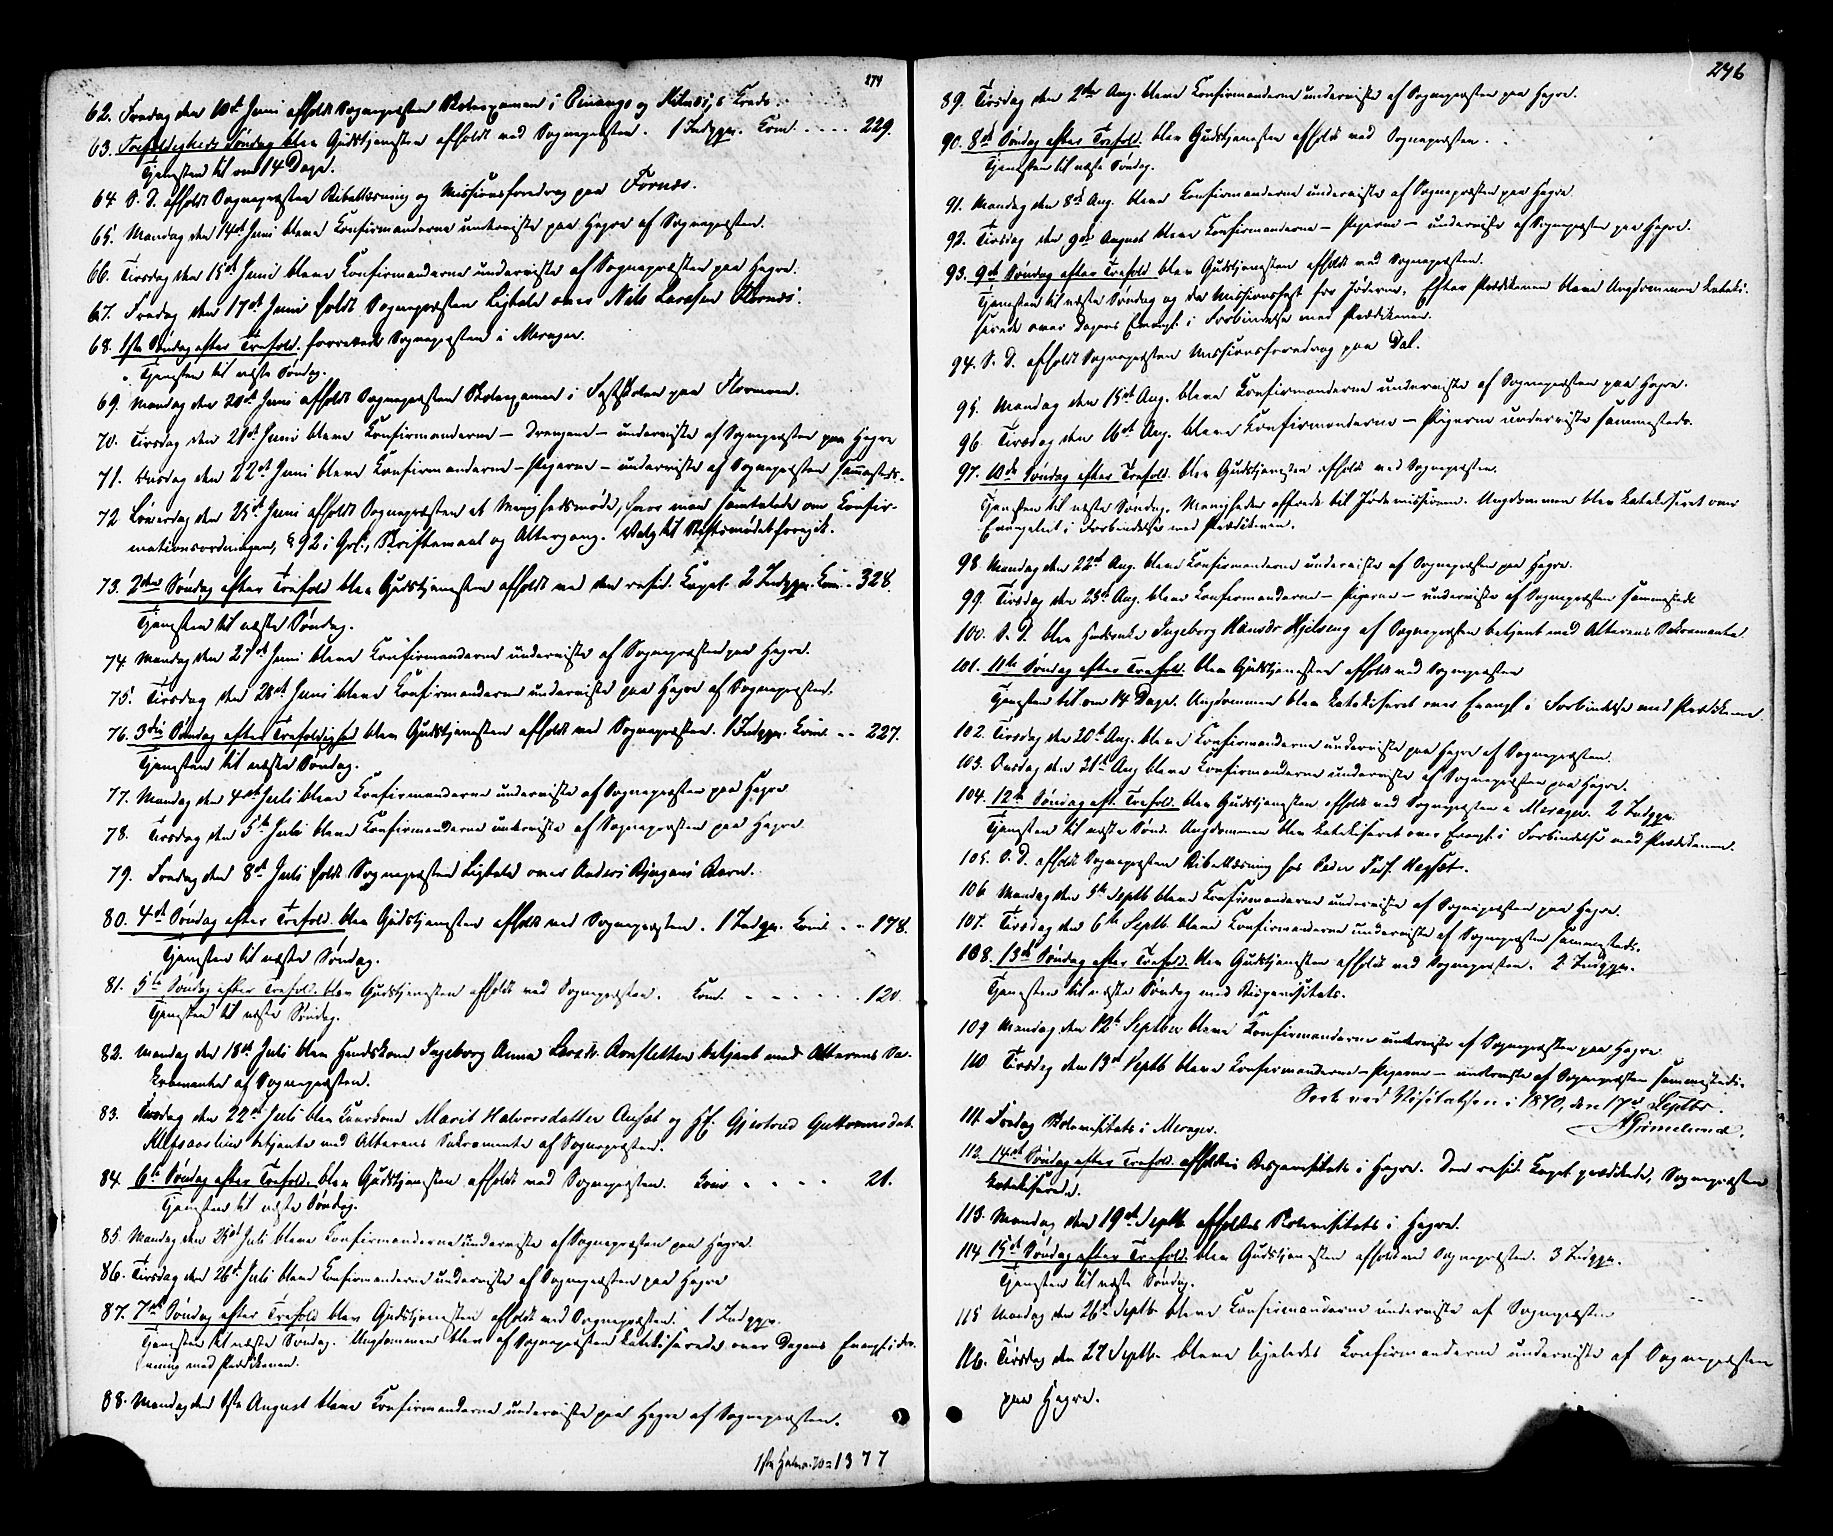 274
62. Fredag den 10de Juni afholdt Sognepræsten Skoleexamen i og Kreds.
63. Trefoldigheds Søndag blev Gudstjenesten afholdt ved Sognepræsten. 1 Indgpr. Kom. 229.
Tjenesten til om 14 Dage.
64 S. D. afholdt Sognepræsten Bibellæsning og Missionsforedrag paa Fornæs.
65. Mandag den 14de Juni bleve Konfirmanderne underviste paa Hegre af Sognepræsten.
66. Tirsdag den 15de Juni bleve Konfirmanderne underviste af Sognepræsten paa Hegre.
67. Fredag den 17de Juni holdt Sognepræsten Ligtale over Nils Larssen
68. 1ste Søndag efter Trefold. forrettede Sognepræsten i Merager.
Tjenesten til næste Søndag.
69. Mandag den 20de Juni afholdt Sognepræsten Skoleexamen i Fastskolen paa Flornæs.
70. Tirsdag den 21de Juni bleve Konfirmanderne – Drengene – underviste af Sognepræsten paa Hegre
71. Onsdag den 22de Juni bleve Konfirmanderne – Pigerne – underviste af Sognepræsten sammesteds.
72 Løverdag den 25de Juni afholdt Sognepræsten et Menighedsmøde, hvor man samtalede om Konfir-
mationsordningen, § 92 i Grl., Skriftemaal og Altergang. Valg til Stiftsmødet foregik.
73. 2den Søndag efter Trefold blev Gudstjenesten afholdt ved den resid. Kapel. 2 Indgpr. Kom. 328.
Tjenesten til næste Søndag.
74. Mandag den 27de Juni bleve Konfirmanderne underviste af Sognepræsten paa Hegre.
75. Tirsdag den 28de Juni bleve Konfirmanderne underviste paa Hegre af Sognepræsten.
76. 3die Søndag efter Trefoldighed blev Gudstjenesten afholdt ved Sognepræsten. 1 Indgpr. Kom. 227.
Tjenesten til næste Søndag.
77. Mandag den 4de Juli bleve Konfirmanderne underviste af Sognepræsten paa Hegre
78. Tirsdag den 5te Juli bleve Konfirmanderne underviste af Sognepræsten paa Hegre
79. Fredag den 8de Juli holdt Sognepræsten Ligtale over Anders Barn.
80. 4de Søndag efter Trefold. blev Gudstjenesten afholdt ved Sognepræsten. 1 Indgpr. Kom. 178.
Tjenesten til næste Søndag.
81. 5te Søndag efter Trefold. blev Gudstjenesten afholdt ved Sognepræsten. Kom. 120.
Tjenesten til næste Søndag.
82. Mandag den 18de Juli blev Huuskone Ingeborg Anna Larsd. betjent med Alterens Sa-
kramente af Sognepræsten.
83. den 22de Juli blev Marit Halvorsdatter og Gjertrud Guttormsdat.
betjente med Alterens Sakramente af Sognepræsten.
84. 6te Søndag efter Trefold. blev Gudstjenesten afholdt ved Sognepræsten. Kom 21.
Tjenesten til næste Søndag.
85. Mandag den 25de Juli bleve Konfirmanderne underviste af Sognepræsten paa Hegre.
86. Tirsdag den 26de Juli bleve Konfirmanderne underviste af Sognepræsten paa Hegre
87. 7de Søndag efter Trefold blev Gudstjenesten afholdt ved Sognepræsten. 1 Indgpr.
Tjenesten til næste Søndag. Ungdommen blev af Sognepræsten katekiserede over Dagens Evangl. i
med Prædikenen.
88. Mandag den 1ste August bleve Konfirmanderne underviste paa Hegre af Sognepræsten.
1377
246
89. Tirsdag den 2den Aug. bleve Konfirmanderne underviste af Sognepræsten paa Hegre.
90. 8de Søndag efter Trefold. blev Gudstjenesten afholdt ved Sognepræsten.
Tjenesten til næste Søndag.
91. Mandag den 8de Aug. bleve Konfirmanderne underviste af Sognepræsten paa Hegre
92. Tirsdag den 9de August bleve Konfirmanderne – Pigerne – underviste af Sognepræsten paa Hegre.
93. 9de Søndag efter Trefold blev Gudstjenesten afholdt ved Sognepræsten.
Tjenesten til næste Søndag og da Missionsfest for Jøderne. Efter Prædikenen bleve Ungdommen kateki-
serede over Dagens Evangl. i Forbindelse med Prædikenen.
94. S. D. afholdt Sognepræsten Missionsforedrag paa Dal.
95. Mandag den 15de Aug. bleve Konfirmanderne underviste af Sognepræsten paa Hegre.
96. Tirsdag den 16de Aug. bleve Konfirmanderne – Pigerne underviste sammesteds.
97. 10de Søndag efter Trefold. blev Gudstjenesten afholdt ved Sognepræsten.
Tjenesten til næste Søndag. Menigheden offrede til Jødemissionen. Ungdommen blev katekiseret over
Evangeliet i Forbindelse med Prædikenen.
98 Mandag den 22de Aug. bleve Konfirmanderne underviste af Sognepræsten paa Hegre.
99. Tirsdag den 23de Aug. bleve Konfirmanderne – Pigerne – underviste af Sognepræsten sammesteds
100. S. D. blev Ingeborg Hansdr Hjelseng af Sognepræsten betjent med Alterens Sakramente.
101. 11te Søndag efter Trefold. blev Gudstjenesten afholdt ved Sognepræsten
Tjenesten til om 14 Dage. Ungdommen blev katekiseret over Evangl. i Forbindelse med Prædikenen
102. Tirsdag den Aug. bleve Konfirmanderne underviste paa Hegre af Sognepræsten.
103. Onsdag den 31te Aug bleve Konfirmanderne underviste af Sognepræsten paa Hegre.
104. 12te Søndag eft. Trefold. blev Gudstjenesten afholdt ved Sognepræsten i Merager. 2 Indgpr.
Tjenesten til næste Sønd. Ungdommen blev katekiseret over Evangl. i Forbindelse med Prædikenen.
105. S. D. afholdt Sognepræsten Bibellæsning hos Peder
106. Mandag den 5te Septb bleve Konfirmanderne underviste af Sognepræsten paa Hegre.
107. Tirsdag den 6te Septb. bleve Konfirmanderne underviste af Sognepræsten sammesteds.
108. 13de Søndag efter Trefold. blev Gudstjenesten afholdt ved Sognepræsten. 2 Indgpr.
Tjenesten til næste Søndag med Bispevisitats.
109 Mandag den 12te Septber bleve Konfirmanderne underviste af Sognepræsten paa Hegre
110 Tirsdag den 13de Septb bleve Konfirmanderne – Pigerne – underviste af Sognepræsten sammesteds.
Seet ved Visitatsen i 1870, den 17de Septbr.
AGrimelund.
111. Fredag Skolevisitats i Merager.
112. 14de Søndag efter Trefold. afholdtes Bispevisitats i Hegre. Den resid. Kapel prædikede, Sognepræsten
katekiserede.
113. Mandag den 19de Septb. afholdtes Skolevisitats i Hegre.
114. 15de Søndag efter Trefold. blev Gudstjenesten afholdt ved Sognepræsten. 3 Indgpr.
Tjenesten til næste Søndag.
115 Mandag den 26de Septb. bleve Konfirmanderne underviste af Sognepræsten
116. Tirsdag den 27 Septb. bleve ligeledes Konfirmanderne underviste af Sognepræsten
paa Hegre.